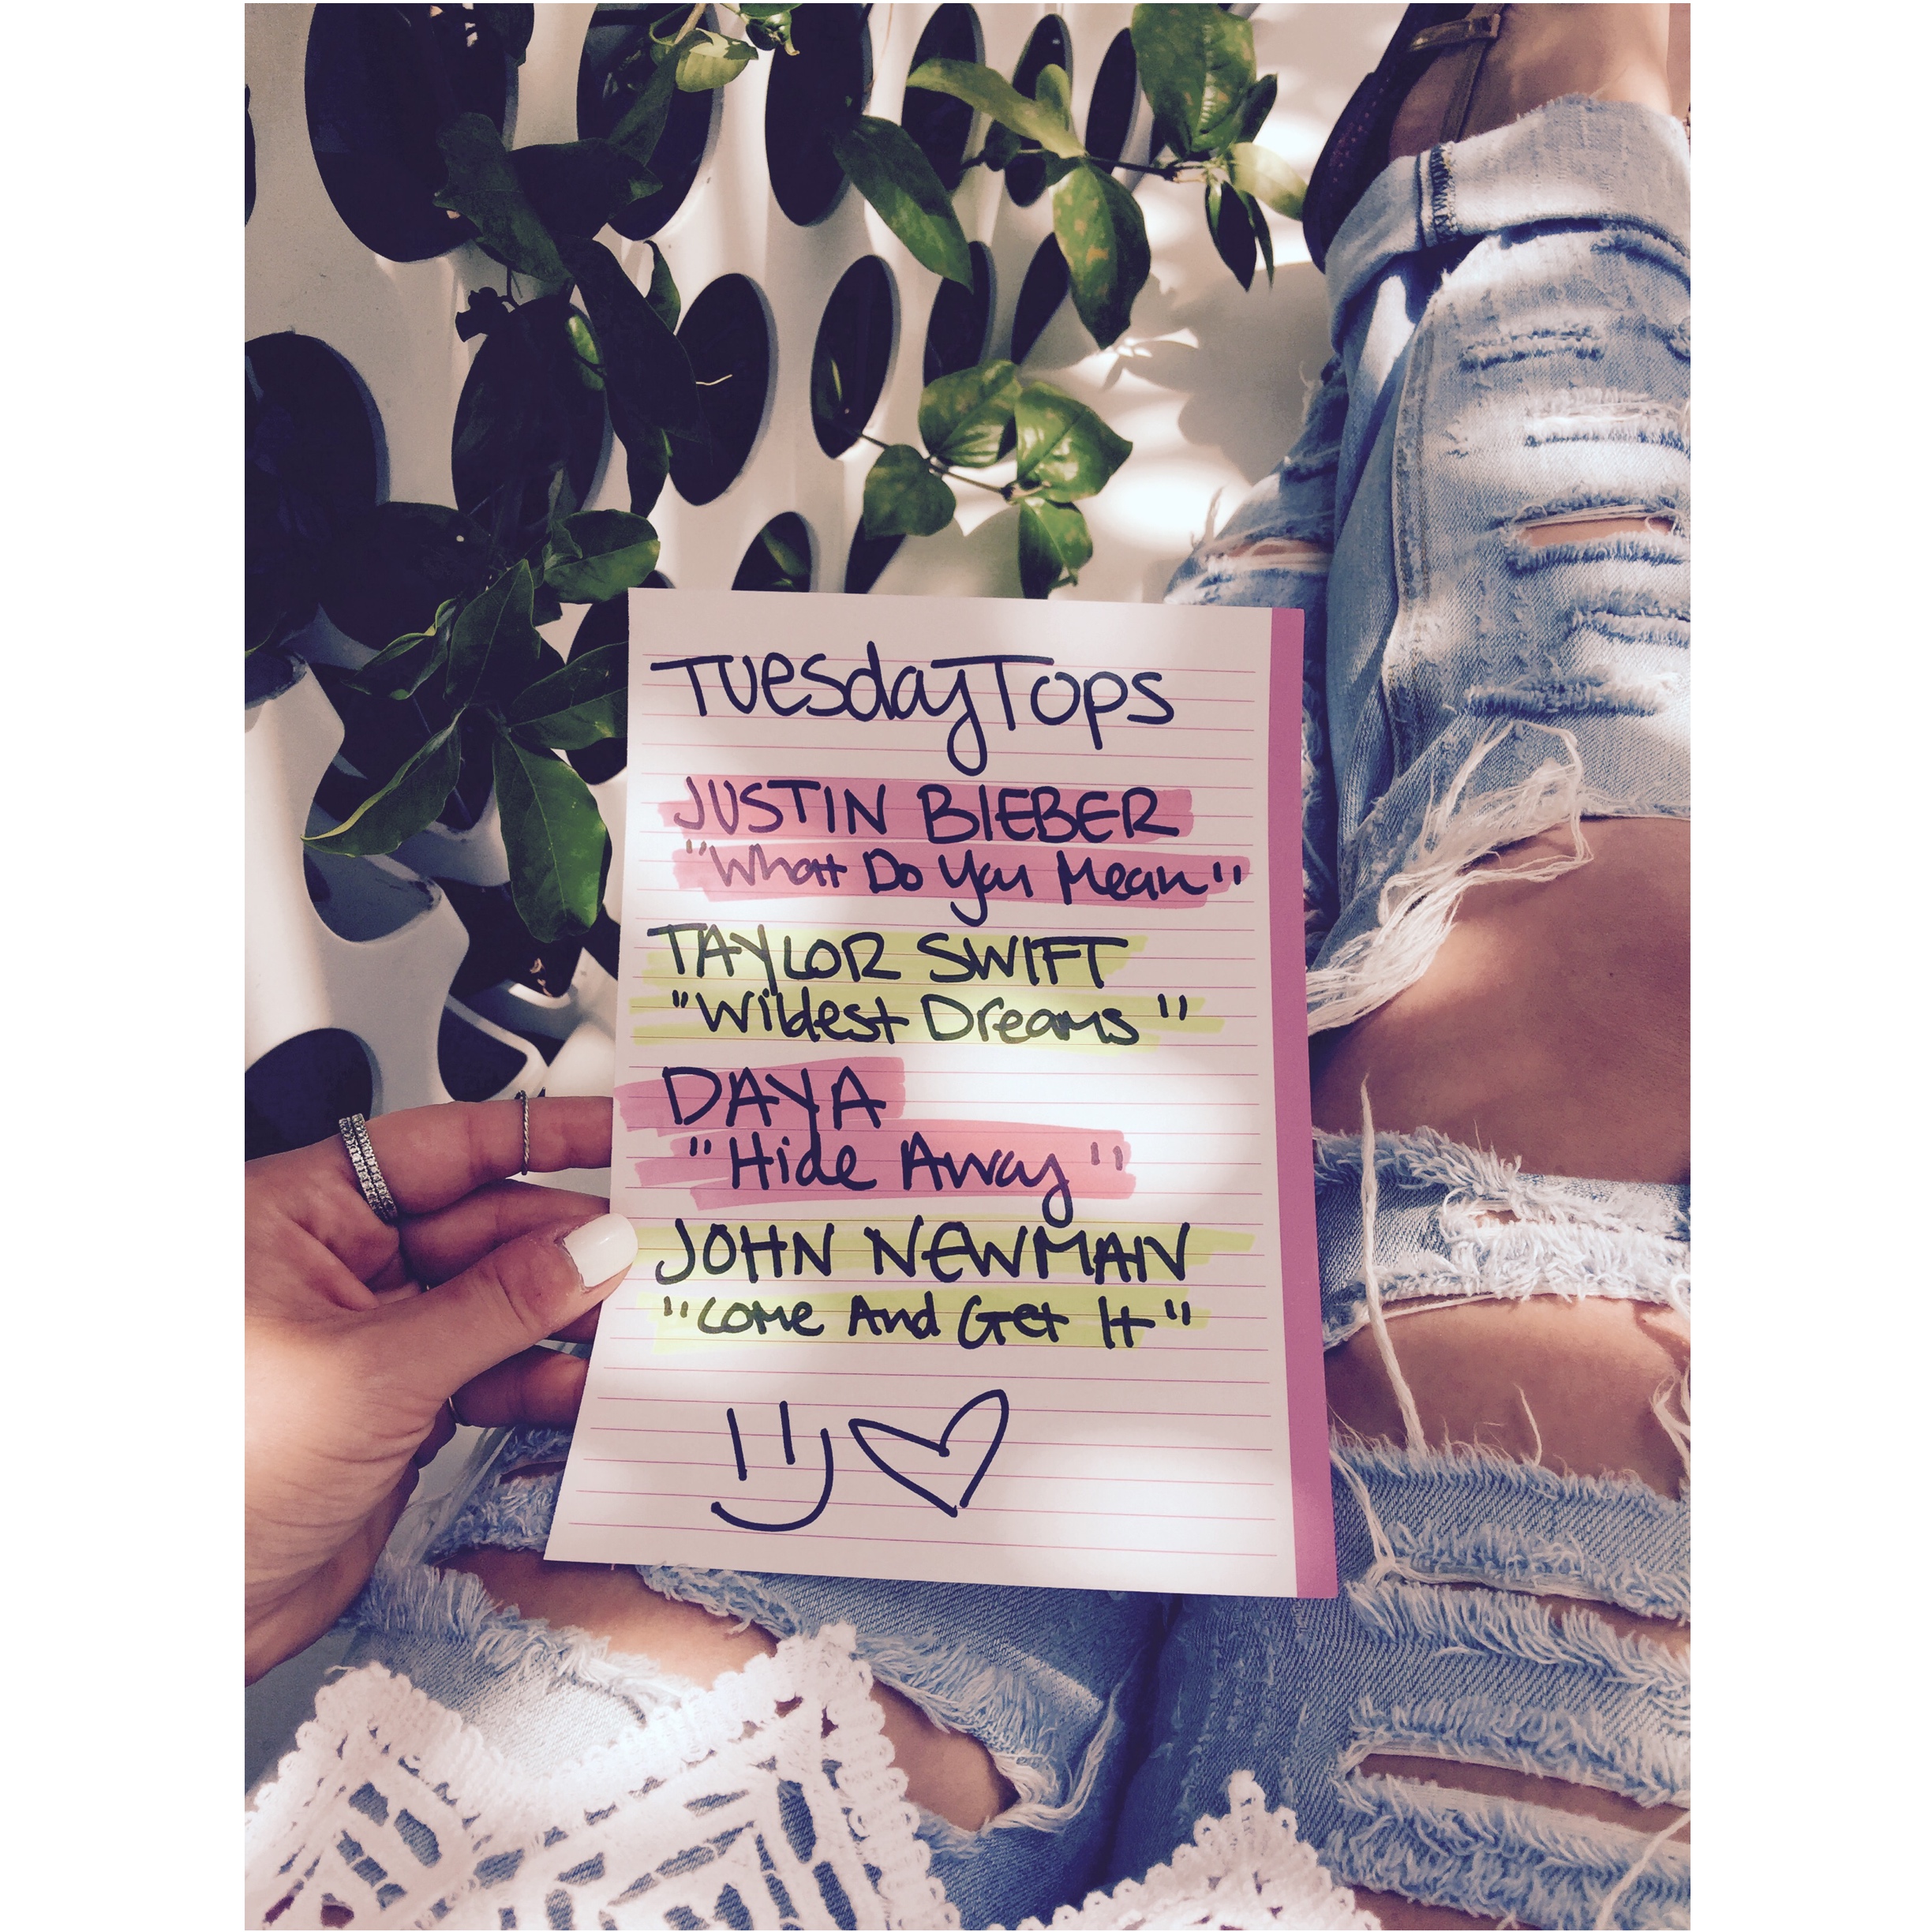 Tuesday Tops
JUSTIN BIEBER
"What Do You Mean"
TAYLOR SWIFT
"Wildest Dreams"
DAYA
"Hide Away"
JOHN NEWMAN
"Come And Get It"